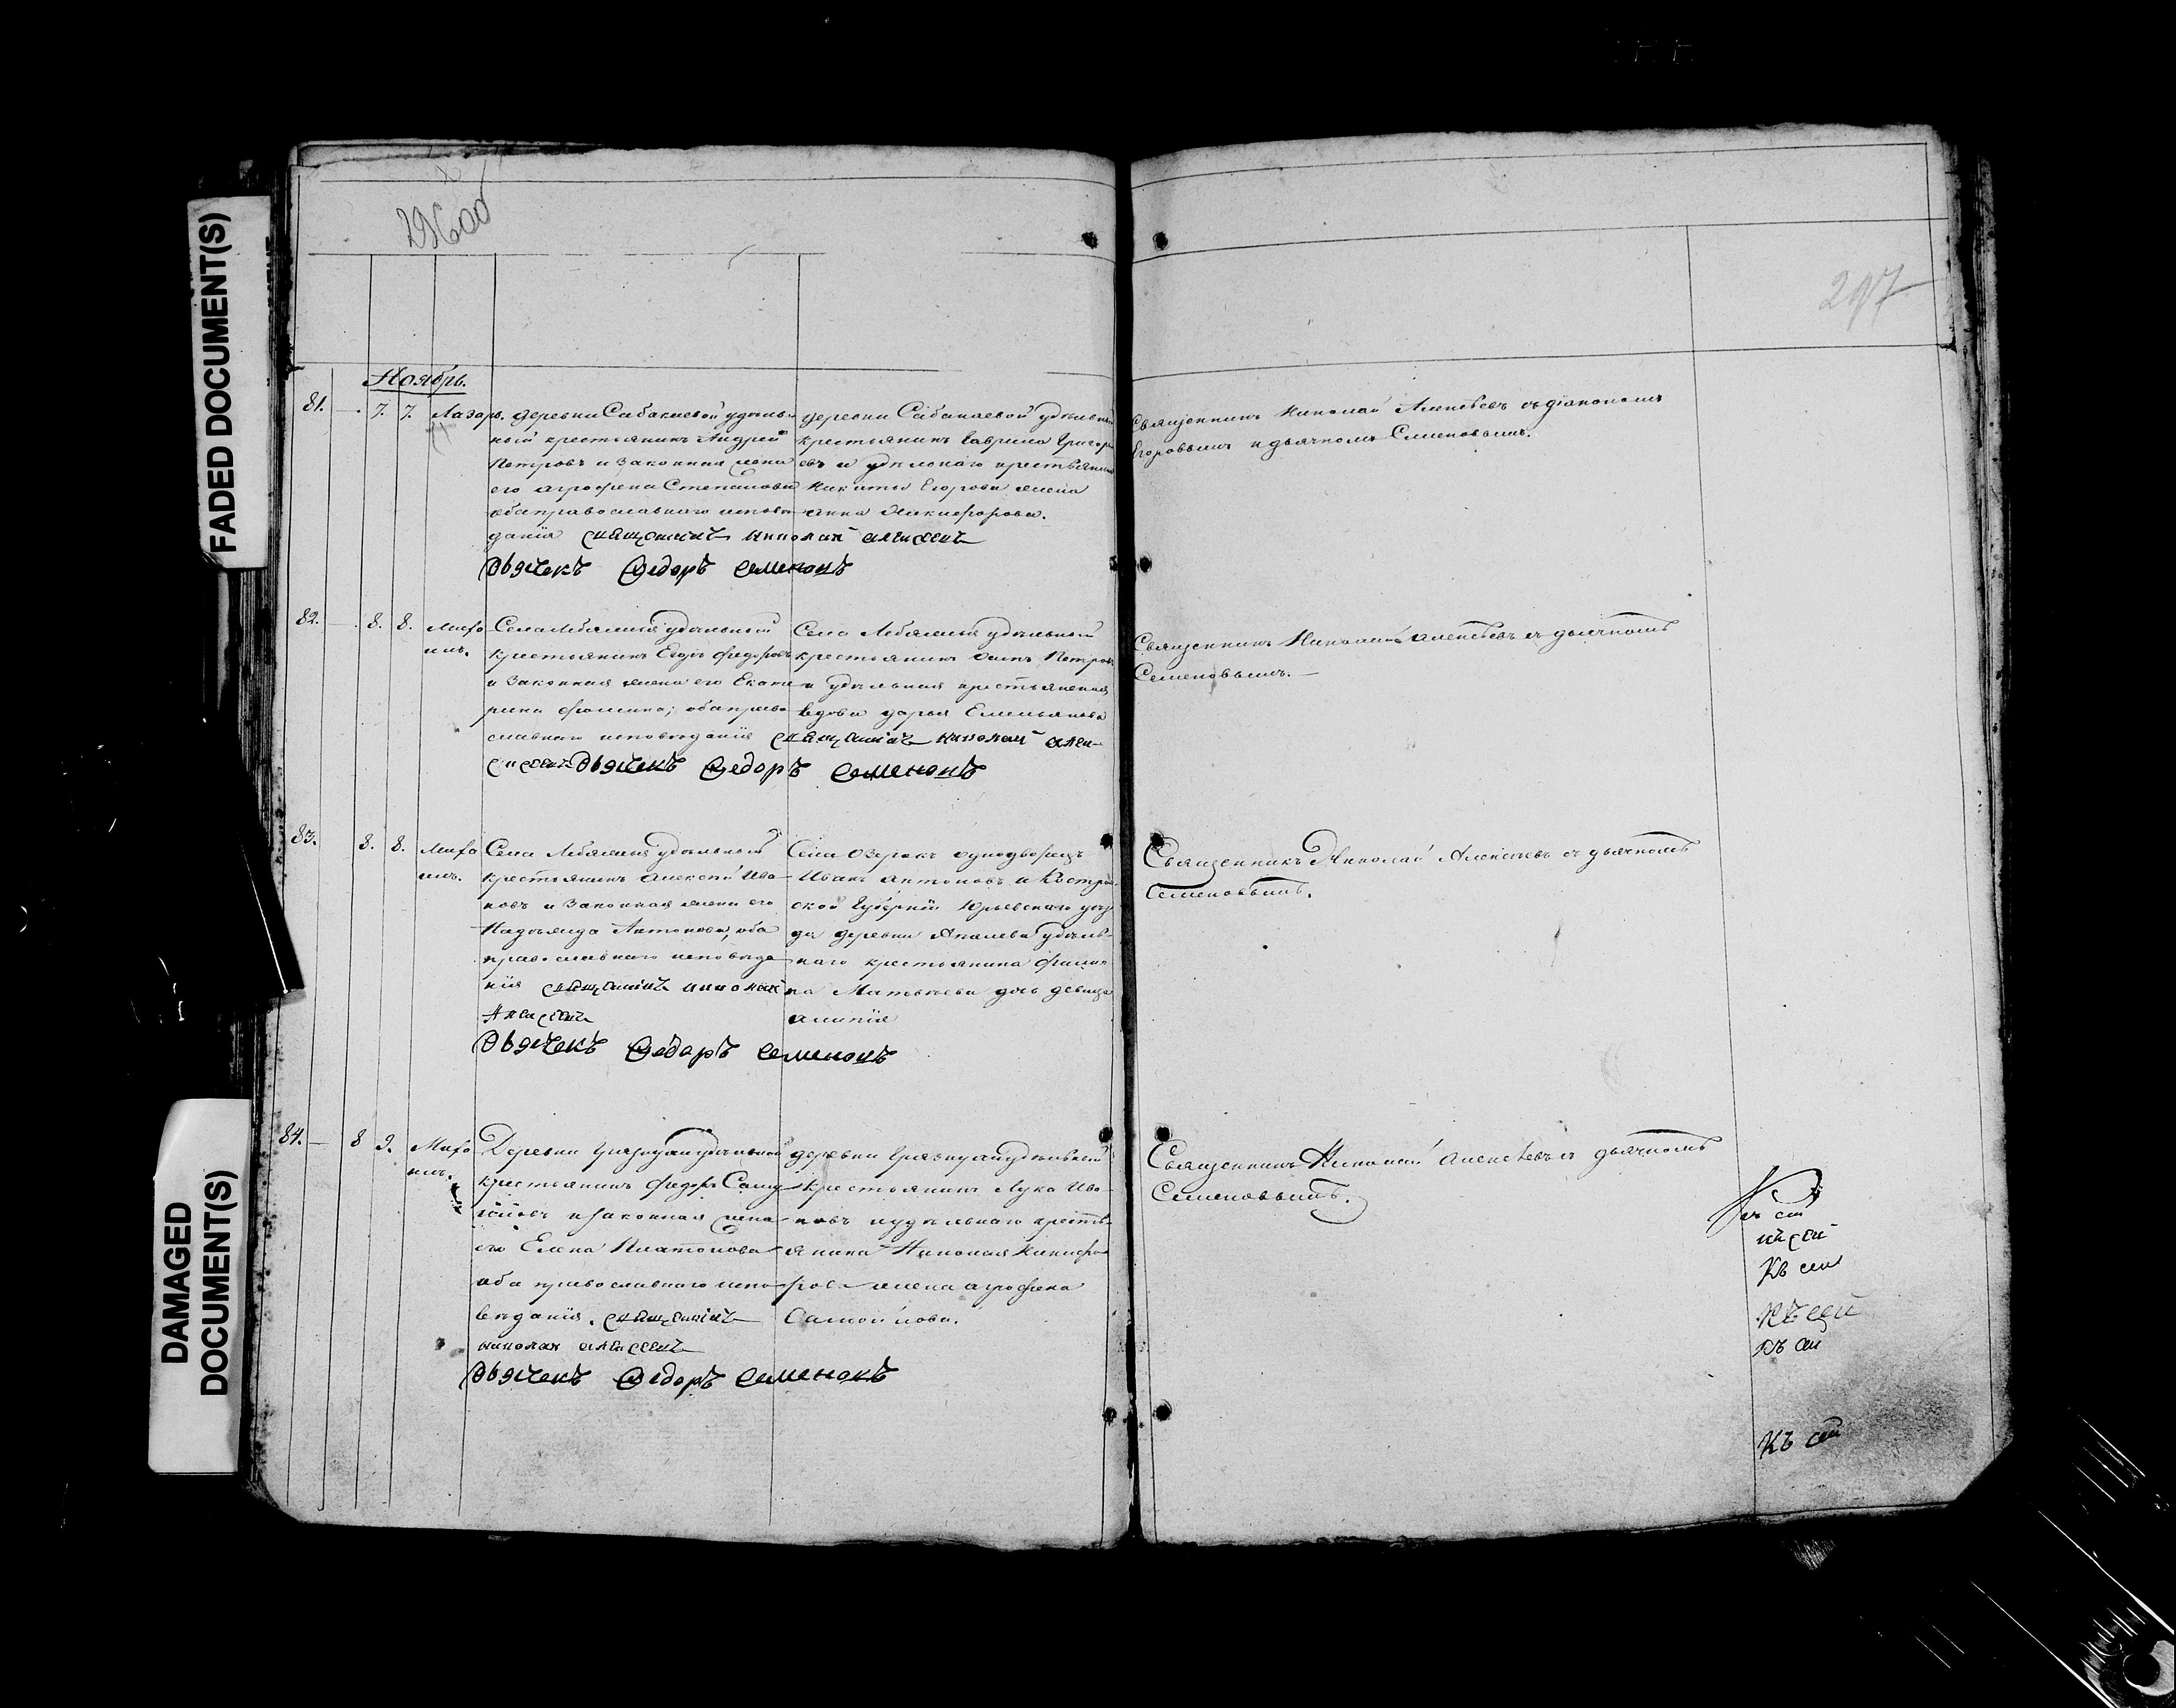 FADED DOCUMENT(S)
DAMAGED DOCUMENT(S)
297
Ноябрь.
81. 7. 7. Лазарь.
деревни Сабакаевой удѣль-
ный крестьянинъ Андрей
Петровъ и законная жена
его агрофена Степанова
оба православнаго исповѣ-
данія священникъ николай алексеевъ
дьячекъ Федоръ Семеновъ
деревни Сабакаевой удѣльный
крестьянинъ Гаврила Григорь
евъ и удѣльнаго крестьянина
Никиты Егорова жена
анна Никифорова.
Священникъ Николай Алексѣевъ съ діакономъ
Егоровымъ и дьячкомъ Семеновымъ.
82. 8. 8. Миха
илъ.
Села удѣльный
крестьянинъ Егоръ Федоровъ
и законная жена его Екате
рина Фомина; оба право
славнаго исповѣданія священникъ николай алек-
сеевъ дьячекъ Федоръ Семеновъ
Села удѣльный
крестьянинъ Петровъ
и удѣльная крестьянская
вдова дарья Емельянова
Священникъ Николай алексѣевъ съ дьячкомъ
Семеновымъ.
83. 8. 8. Миха
илъ.
Села удѣльный
крестьянинъ алексѣй Ива
новъ и законная жена его
Надежда Антонова, оба
православнаго исповѣда
нія священникъ николай
Алексеевъ
дьячекъ Федоръ Семеновъ
Села Озерокъ однодворецъ
Иванъ антоновъ и Костром
ской Губерніи Юрьевскаго уѣз
да деревни удѣль-
наго крестьянина Филип
па Матвѣева дочь девица
Священникъ Николай Алексѣевъ съ дьячкомъ
Семеновымъ.
84. 8 9. Миха
илъ.
Деревни Грязнухи удѣльной
крестьянинъ Федоръ Саму
йловъ и законная жена
его Елена Платонова
оба православнаго испо
вѣданія. священникъ
николай алексеевъ
дьячекъ Федоръ Семеновъ
деревни Грязнухи удѣльный
крестьянинъ Лука Ива
новъ и удѣльнаго кресть-
янина Николая Никифо
рова жена агрофена
Самойлова.
Священникъ Николай алексѣевъ съ дьячкомъ
Семеновымъ.
къ сей
Къ сей
къ сей
Къ сей